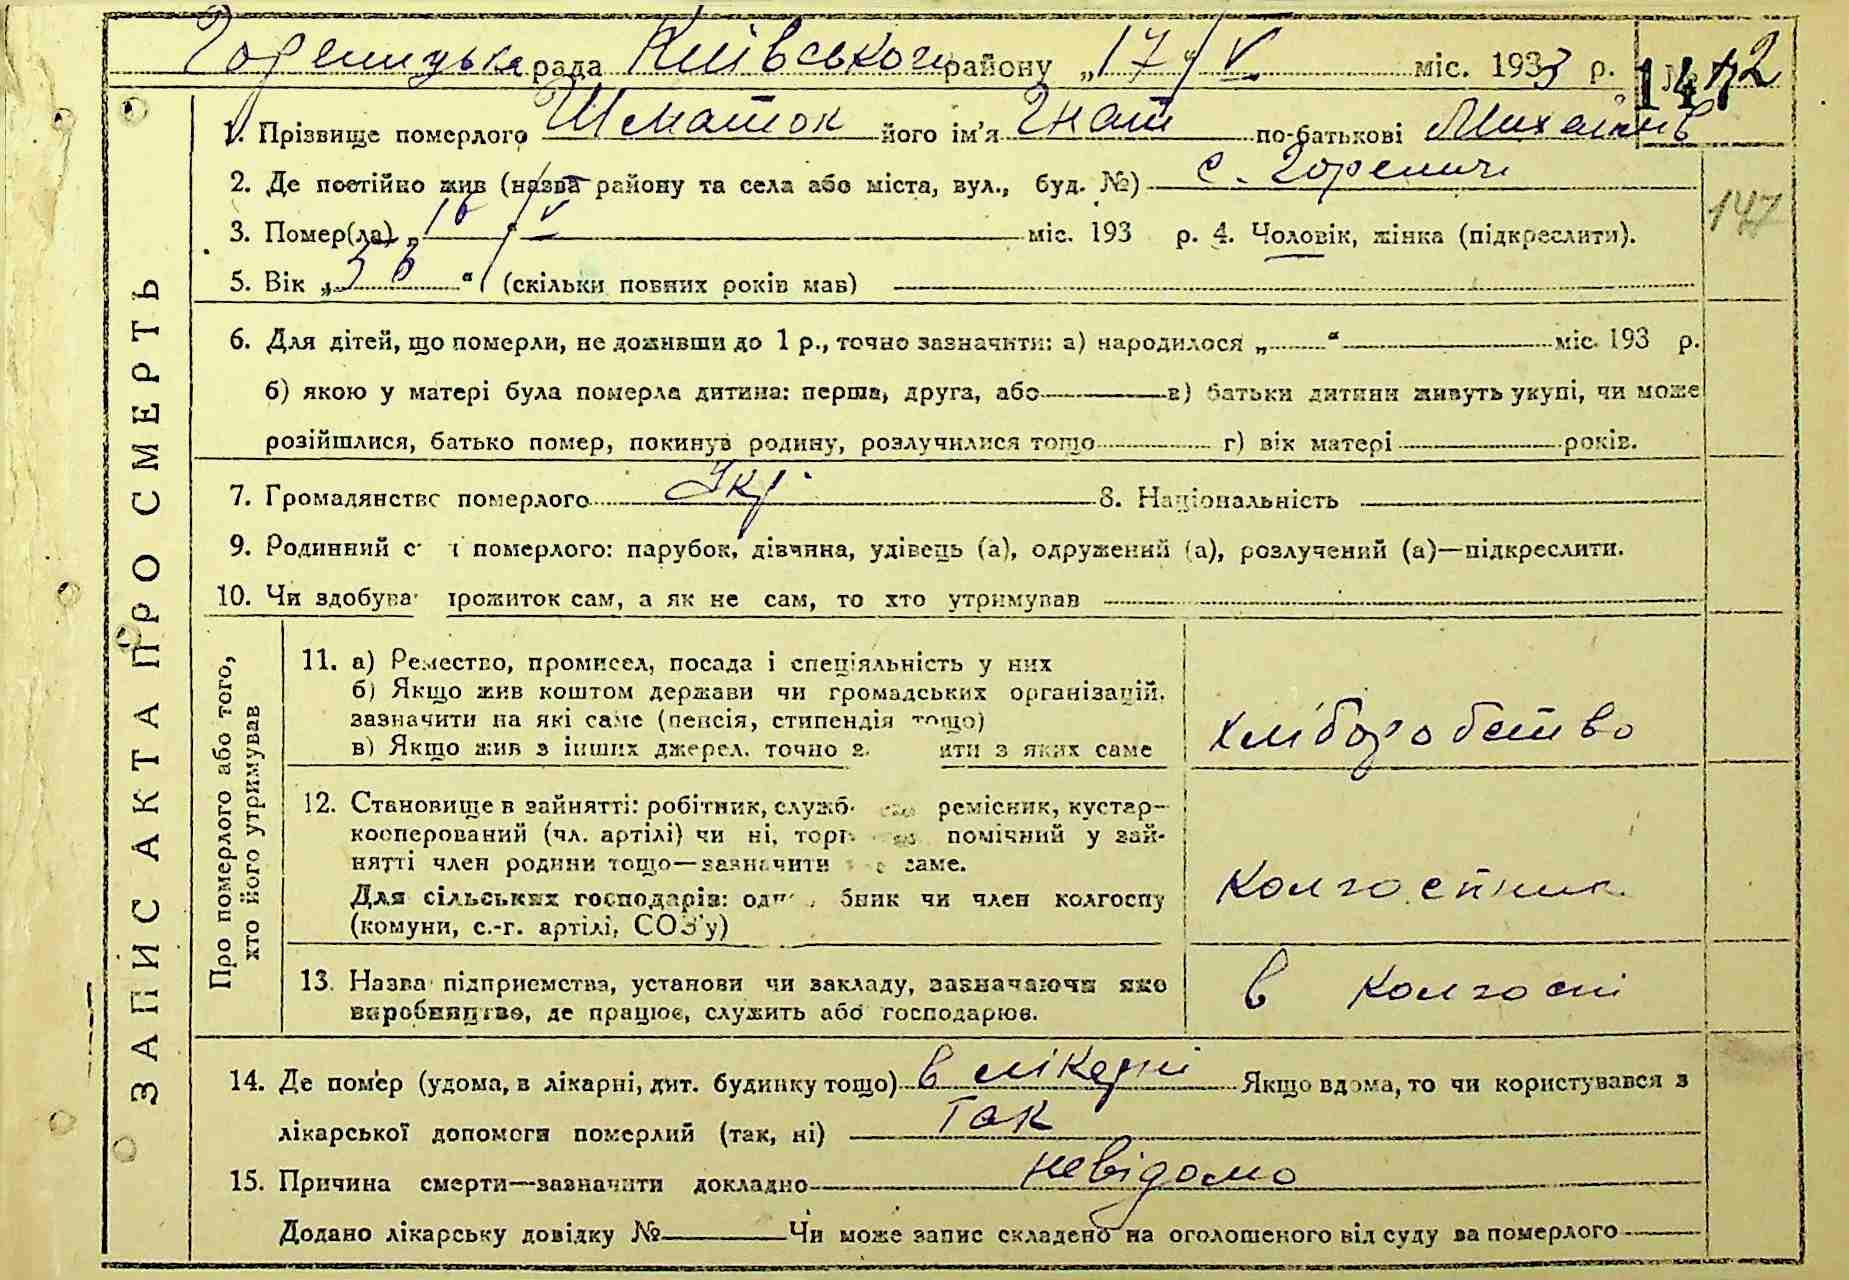 Гореницька рада Київського району „17“/V міс. 1933 р. № 142
147
1. Прізвище померлого Шматок його ім’я Гнат по-батькові Михайлів
2. Де постійно жив (назва району та села або міста, вул., буд. №) с. Гореничі
147
3. Помер(ла) „16“/V міс. 193 р. 4. Чоловік, жінка (підкреслити).
5. Вік „36“ (скільки повних років мав)
6. Для дітей, що померли, не доживши до 1 р., точно зазначити: а) народилося „ “ міс. 193 р.
б) якою у матері була померла дитина: перша, друга, або в) батьки дитини живуть укупі, чи може
розійшлися, батько помер, покинув родину, розлучилися тощо г) вік матері років.
7. Громадянство померлого Укр. 8. Національність
9. Родинний с і померлого: парубок, дівчина, удівець (а), одружений (а), розлучений (а)—підкреслити.
10. Чи здобува прожиток сам, а як не сам, то хто утримував
ЗАПИС АКТА ПРО СМЕРТЬ
Про померлого або того,
хто його утримував
11. а) Ремество, промисел, посада і спеціяльність у них
б) Якщо жив коштом держави чи громадських організацій,
зазначити на які саме (пенсія, стипендія тощо)
в) Якщо жив з інших джерел, точно з ити з яких саме
хліборобство
12. Становище в зайнятті: робітник, служб ремісник, кустар-
кооперований (чл. артілі) чи ні, торг помічний у зай-
нятті член родини тощо—зазначити саме.
Для сільських господарів: од бник чи член колгоспу
(комуни, с.-г. артілі, СОЗ’у)
колгоспник
13. Назва підприємства, установи чи закладу, зазначаючи яко
виробництво, де працює, служить або господарює.
в колгоспі
14. Де помер (удома, в лікарні, дит. будинку тощо) в лікарні Якщо вдома, то чи користувався з
лікарської допомоги померлий (так, ні) так
15. Причина смерти—зазначити докладно невідомо
Додано лікарську довідку № Чи може запис складено на оголошеного від суду за померлого